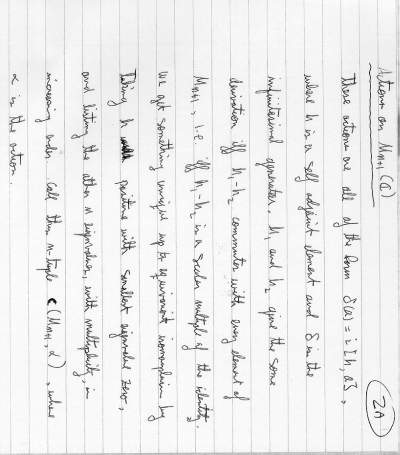 2A
Actions on Mn+1 (C)
These actions are all of the form δ(a) = i[h, a],
where h is a self adjoint element and δ is the
infinitesimal generator. h1 and h2 give the same
derivation iff h1-h2 commutes with every element of
Mn+1, i.e iff h1-h2 is a scalar multiple of the identity.
We get something unique up to equivariant isomorphism by
taking h positive with smallest eigenvalue zero,
and listing the other n eigenvalues, with multiplicity, in
increasing order. Call this n-tuple c(Mn+1, α), where
α is the action.